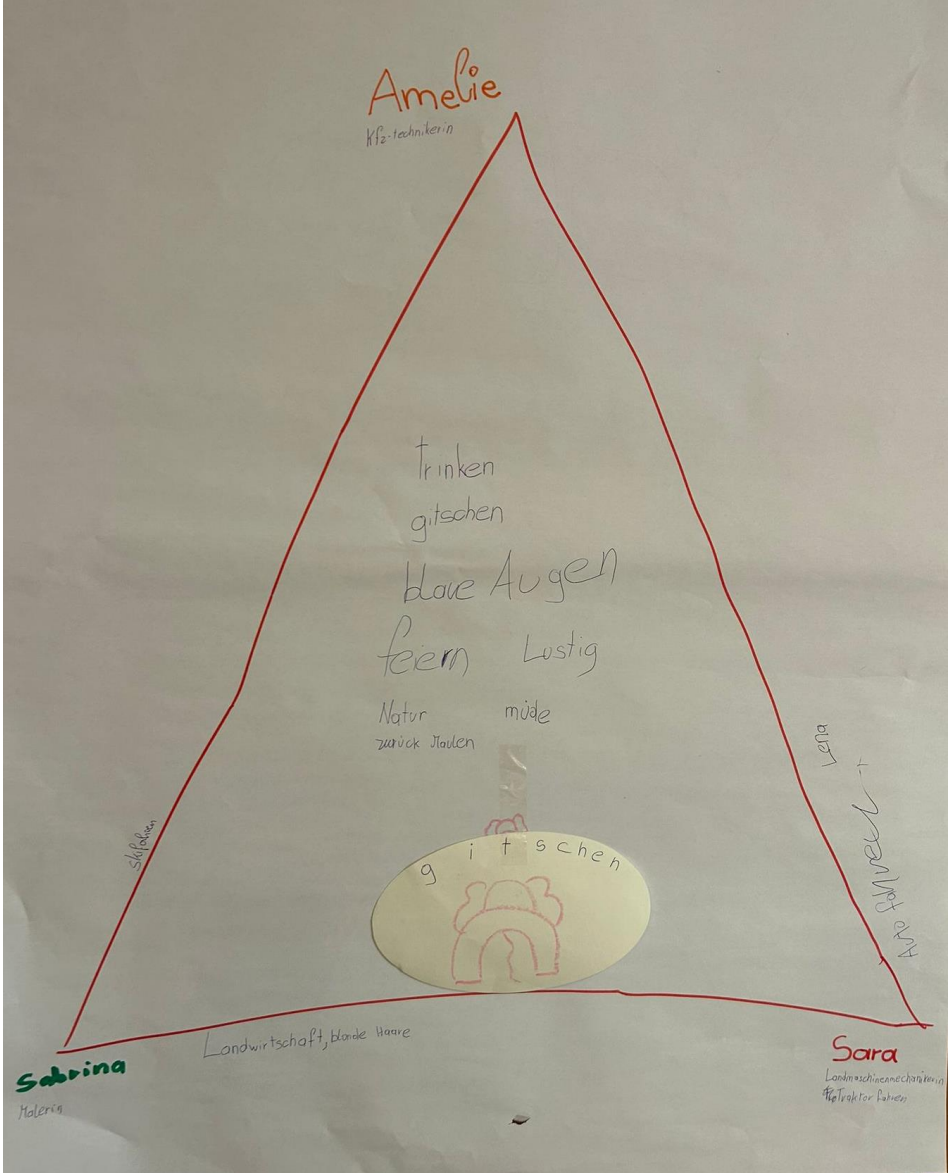 Amelie
Kfz-technikerin
trinken
gitschen
blaue Augen
feiern Lustig
Natur müde
zurück Maulen
Lena
skifahren
Auto fahren
gitschen
Landwirtschaft, blonde Haare
Sabrina
Malerin
Sara
Landmaschinenmechanikerin
Traktor fahren